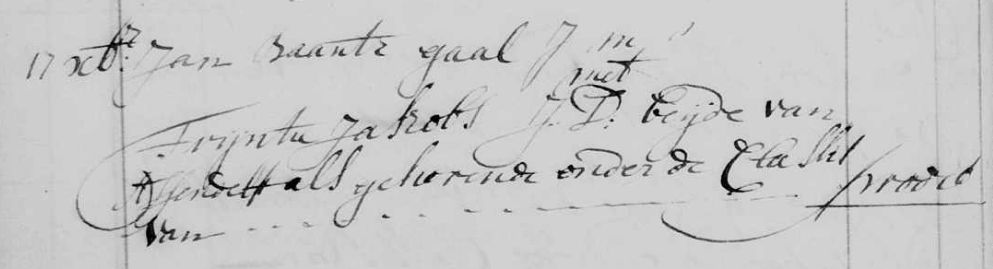 17 xbr. Jan Baante gaal J m
met
Tryntie Jakobs J. D. beyde van
Assendelft als gehorende onder de Classis
van - - - - - - - - - prodeo